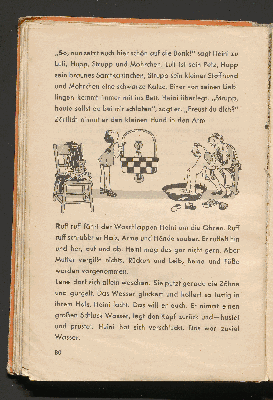 „So, nun setzt euch hier schön auf die Bank!“ sagt Heini zu
Lulu, Hupp, Struppi und Mohrchen. Lulu ist sein Pelz, Hupp
sein braunes Samtkaninchen, Struppi sein kleiner Stoffhund
und Mohrchen eine schwarze Katze. Einer von seinen Lieb-
lingen kommt immer mit ins Bett. Heini überlegt. „Struppi,
heute sollst du bei mir schlafen“, sagt er. „Freust du dich?“
Zärtlich nimmt er den kleinen Hund in den Arm.
Ruff ruff fährt der Waschlappen Heini um die Ohren. Ruff
ruff schrubbt er Hals, Arme und Hände sauber. Er ruffelt hin
und her, auf und ab. Heini mag das gar nicht gern. Aber
Mutter vergißt nichts. Rücken und Leib, Beine und Füße
werden vorgenommen.
Lene darf sich allein waschen. Sie putzt gerade die Zähne
und gurgelt. Das Wasser gluckert und kollert so lustig in
ihrem Hals. Heini lacht. Das will er auch. Er nimmt einen
großen Schluck Wasser, legt den Kopf zurück und — hustet
und prustet. Heini hat sich verschluckt. Das war zuviel
Wasser.
80